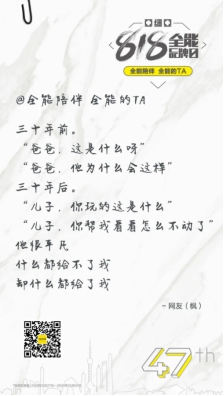 818全能品牌日
全能陪伴 全能的TA
@全能陪伴 全能的TA
三十年前。
“爸爸，这是什么呀”
“爸爸，他为什么会这样”
三十年后。
“儿子，你玩的这是什么”
“儿子，你帮我看看怎么不动了”
他很平凡
什么都给不了我
却什么都给了我
－网友（枫）
47th